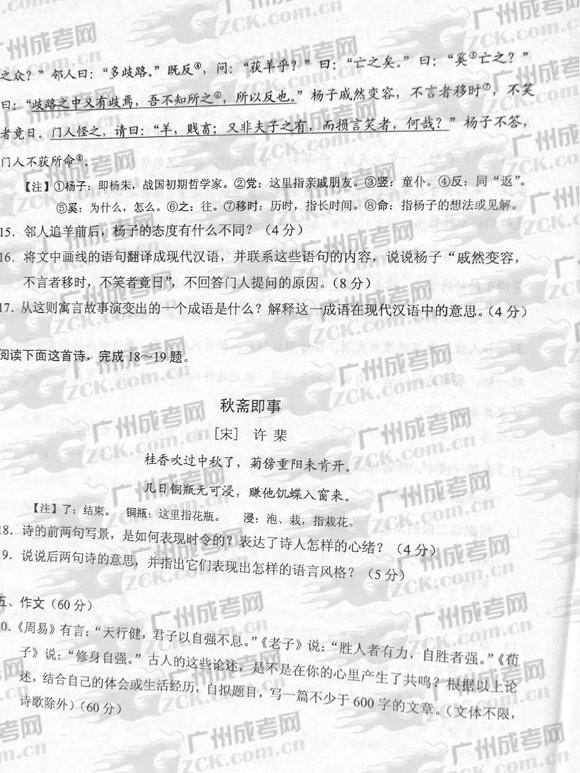 之众？”邻人曰：“多歧路。”既反④，问：“获羊乎？”曰：“亡之矣。”曰：“奚⑤亡之？”
曰：“歧路之中又有歧焉，吾不知所之⑥，所以反也。”杨子戚然变容，不言者移时⑦，不笑
者竟日。门人怪之，请曰：“羊，贱畜；又非夫子之有，而损言笑者，何哉？”杨子不答，
门人不获所命⑧。
【注】①杨子：即杨朱，战国初期哲学家。②党：这里指亲戚朋友。③竖：童仆。④反：同“返”。
⑤奚：为什么，怎么。⑥之：往。⑦移时：历时，指长时间。⑧命：指杨子的想法或见解。
15．邻人追羊前后，杨子的态度有什么不同？（4 分）
16．将文中画线的语句翻译成现代汉语，并联系这些语句的内容，说说杨子“戚然变容，
不言者移时，不笑者竟日”，不回答门人提问的原因。（8 分）
17．从这则寓言故事演变出的一个成语是什么？解释这一成语在现代汉语中的意思。（4 分）
阅读下面这首诗，完成 18～19 题。
秋斋即事
［宋］ 许 棐
桂香吹过中秋了，菊傍重阳未肯开。
几日铜瓶无可浸，赚他饥蝶入窗来。
【注】了：结束。 铜瓶：这里指花瓶。 浸：泡、栽，指栽花。
18．诗的前两句写景，是如何表现时令的？表达了诗人怎样的心绪？（4 分）
19．说说后两句诗的意思，并指出它们表现出怎样的语言风格？（5 分）
五、作文（60 分）
20．《周易》有言：“天行健，君子以自强不息。”《老子》说：“胜人者有力，自胜者强。”《荀
子》说：“修身自强。”古人的这些论述，是不是在你的心里产生了共鸣？根据以上论
述，结合自己的体会或生活经历，自拟题目，写一篇不少于 600 字的文章。（文体不限，
诗歌除外）（60 分）
广州成考网
GZCK.com.cn